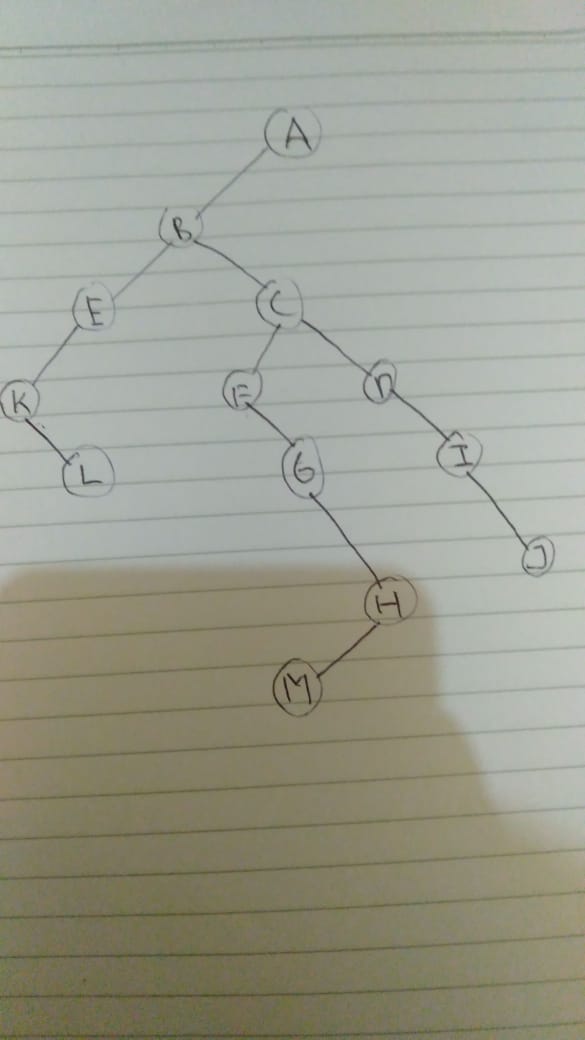 A
B
E C
K F D
L G I
J
H
M